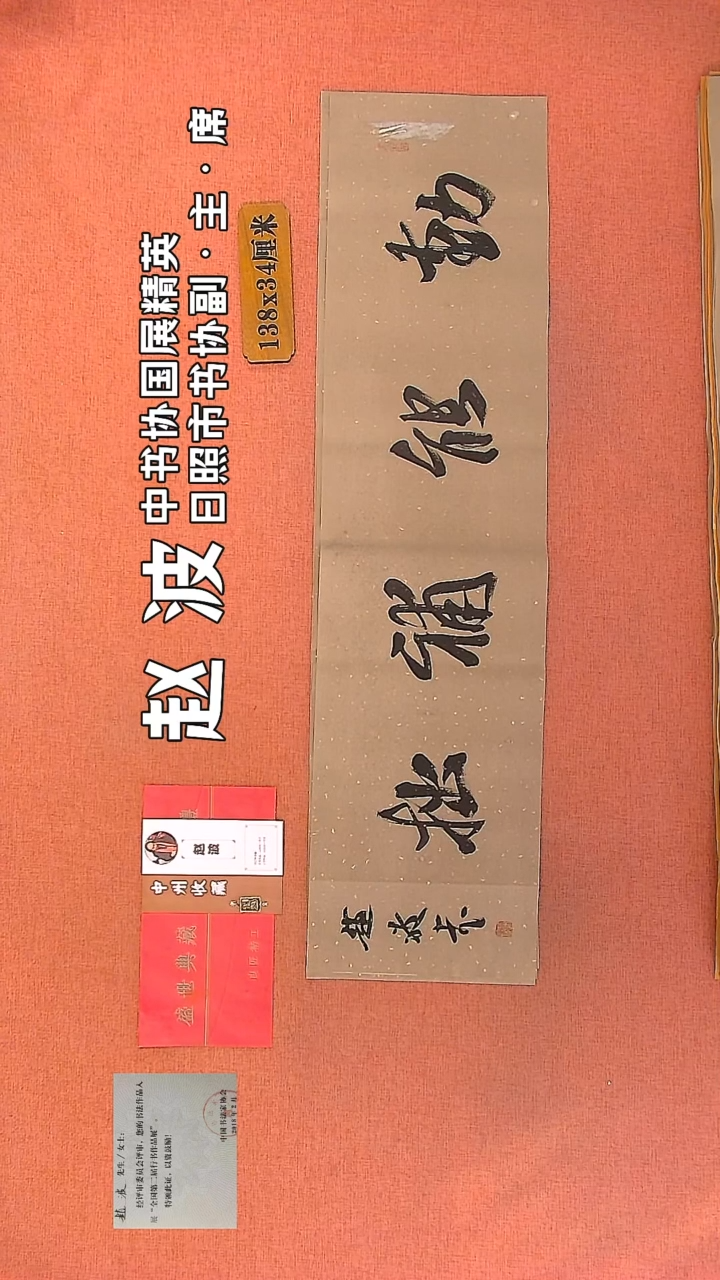 中书协国展精英
赵波
日照市书协副·主·席
138x34厘米
勤能補拙
趙波书
赵波
中州收藏
盛世典藏
赵波 先生/女士:
经评审委员会评审,您的书法作品入
展“全国第二届行书作品展”。
特颁此证,以资鼓励!
中国书法家协会
2018年2月